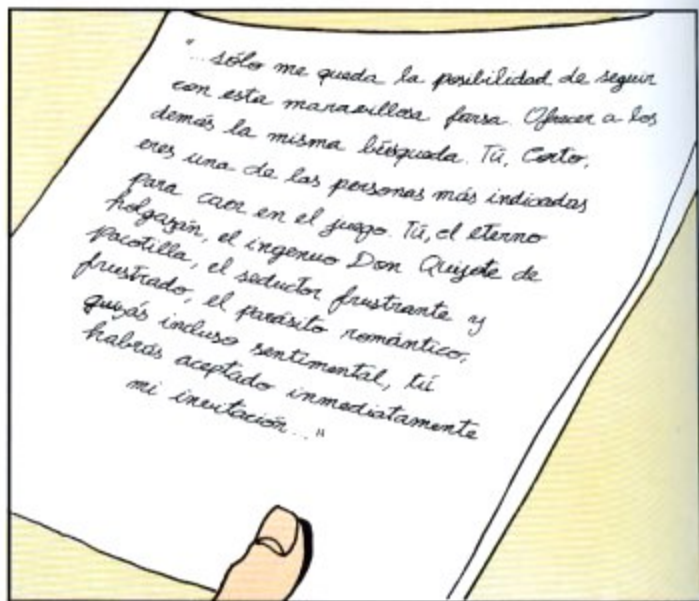 "... sólo me queda la posibilidad de seguir
con esta maravillosa farsa. Ofrecer a los
demás la misma búsqueda. Tú, Corto,
eres una de las personas más indicadas
para caer en el juego. Tú, el eterno
holgazán, el ingenuo Don Quijote de
pacotilla, el seductor frustrante y
frustrado, el parásito romántico,
quizás incluso sentimental, tú
habrás aceptado inmediatamente
mi invitación..."